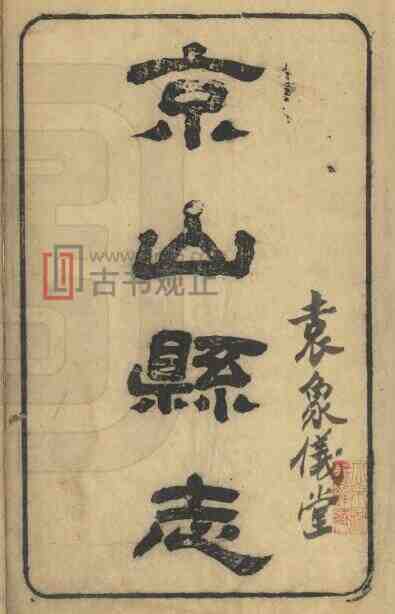 京山縣志
袁象儀堂
www.
古书观止